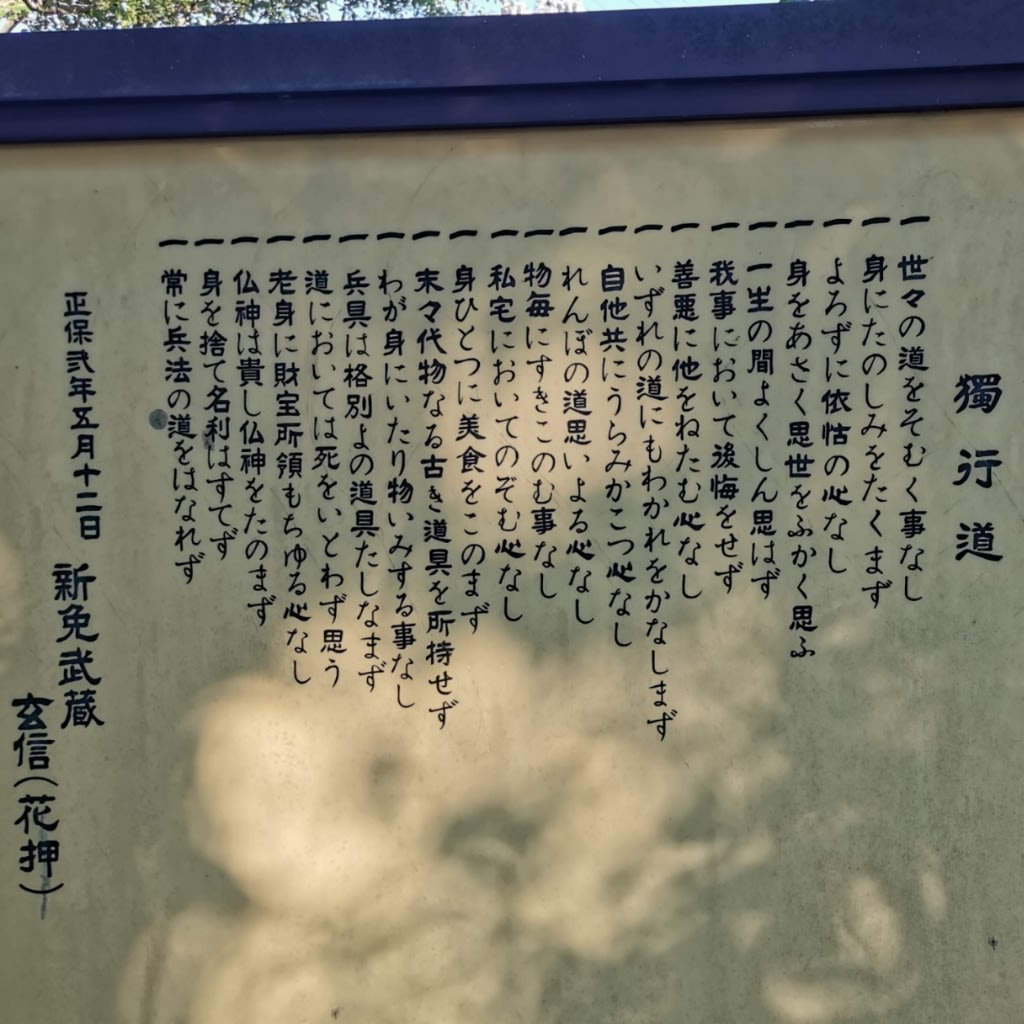 獨行道
一世々の道をそむく事なし
一身にたのしみをたくまず
一よろずに依怙の心なし
一身をあさく思世をふかく思ふ
一一生の間よくしん思はず
一我事において後悔をせず
一善悪に他をねたむ心なし
一いずれの道にもわかれをかなしまず
一自他共にうらみかこつ心なし
一れんぼの道思いよる心なし
一物毎にすきこのむ事なし
一私宅においてのぞむ心なし
一身ひとつに美食をこのまず
一末々代物なる古き道具を所持せず
一わが身にいたり物いみする事なし
一兵具は格別よの道具たしなまず
一道においては死をいとわず思う
一老身に財宝所領もちゆる心なし
一仏神は貴し仏神をたのまず
一身を捨て名利はすてず
一常に兵法の道をはなれず
正保弐年五月十二日 新免武蔵
玄信(花押)